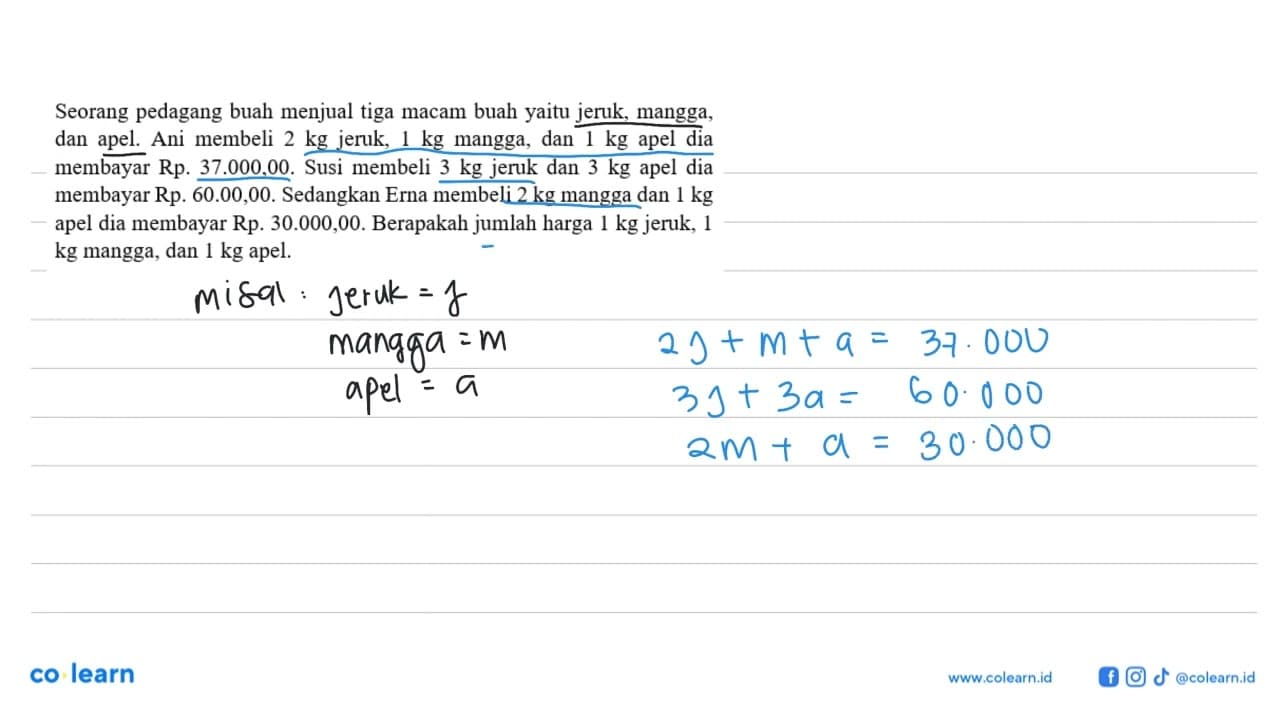 Seorang pedagang buah menjual tiga macam buah yaitu jeruk, mangga,
dan apel. Ani membeli 2 kg jeruk, 1 kg mangga, dan 1 kg apel dia
membayar Rp. 37.000,00. Susi membeli 3 kg jeruk dan 3 kg apel dia
membayar Rp. 60.00,00. Sedangkan Erna membeli 2 kg mangga dan 1 kg
apel dia membayar Rp. 30.000,00. Berapakah jumlah harga 1 kg jeruk, 1
kg mangga, dan 1 kg apel.
misal : jeruk = j
mangga = m
apel = a
2j + m + a = 37.000
3j + 3a = 60.000
2m + a = 30.000
co learn
www.colearn.id
@colearn.id